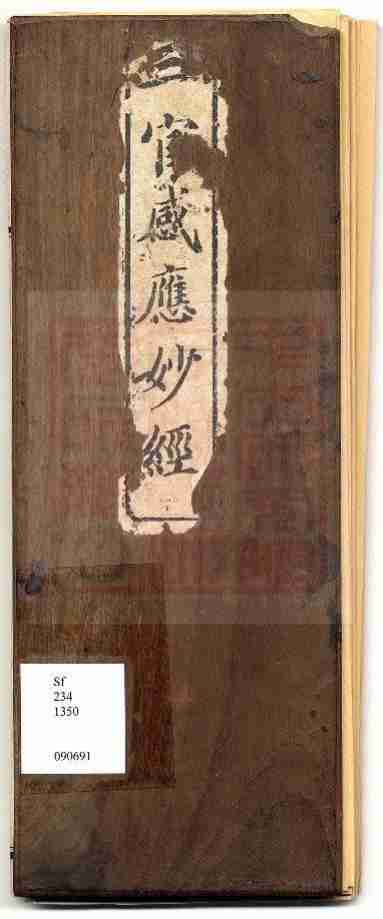 三官感應妙經
Sf
234
1350
090691